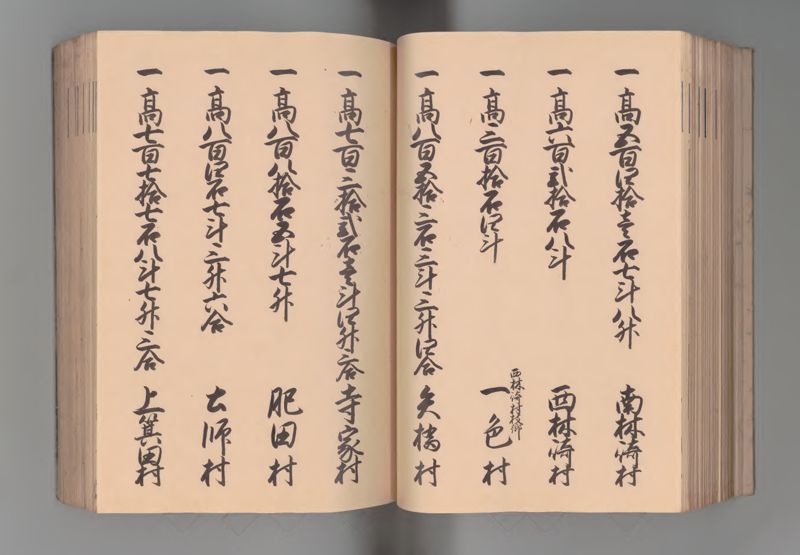 一高五百四拾壱石七斗八升 南林崎村
一高六百弐拾石八斗 西林崎村
一高三百拾石四斗 西林崎村枝郷 一色村
一高八百五拾三石三斗三升四合 矢橋村
一高七百三拾弐石壱斗四升三合 寺家村
一高八百八拾石五斗七升 肥田村
一高八百四石七斗三升六合 土師村
一高七百七拾七石八斗七升三合 上箕田村